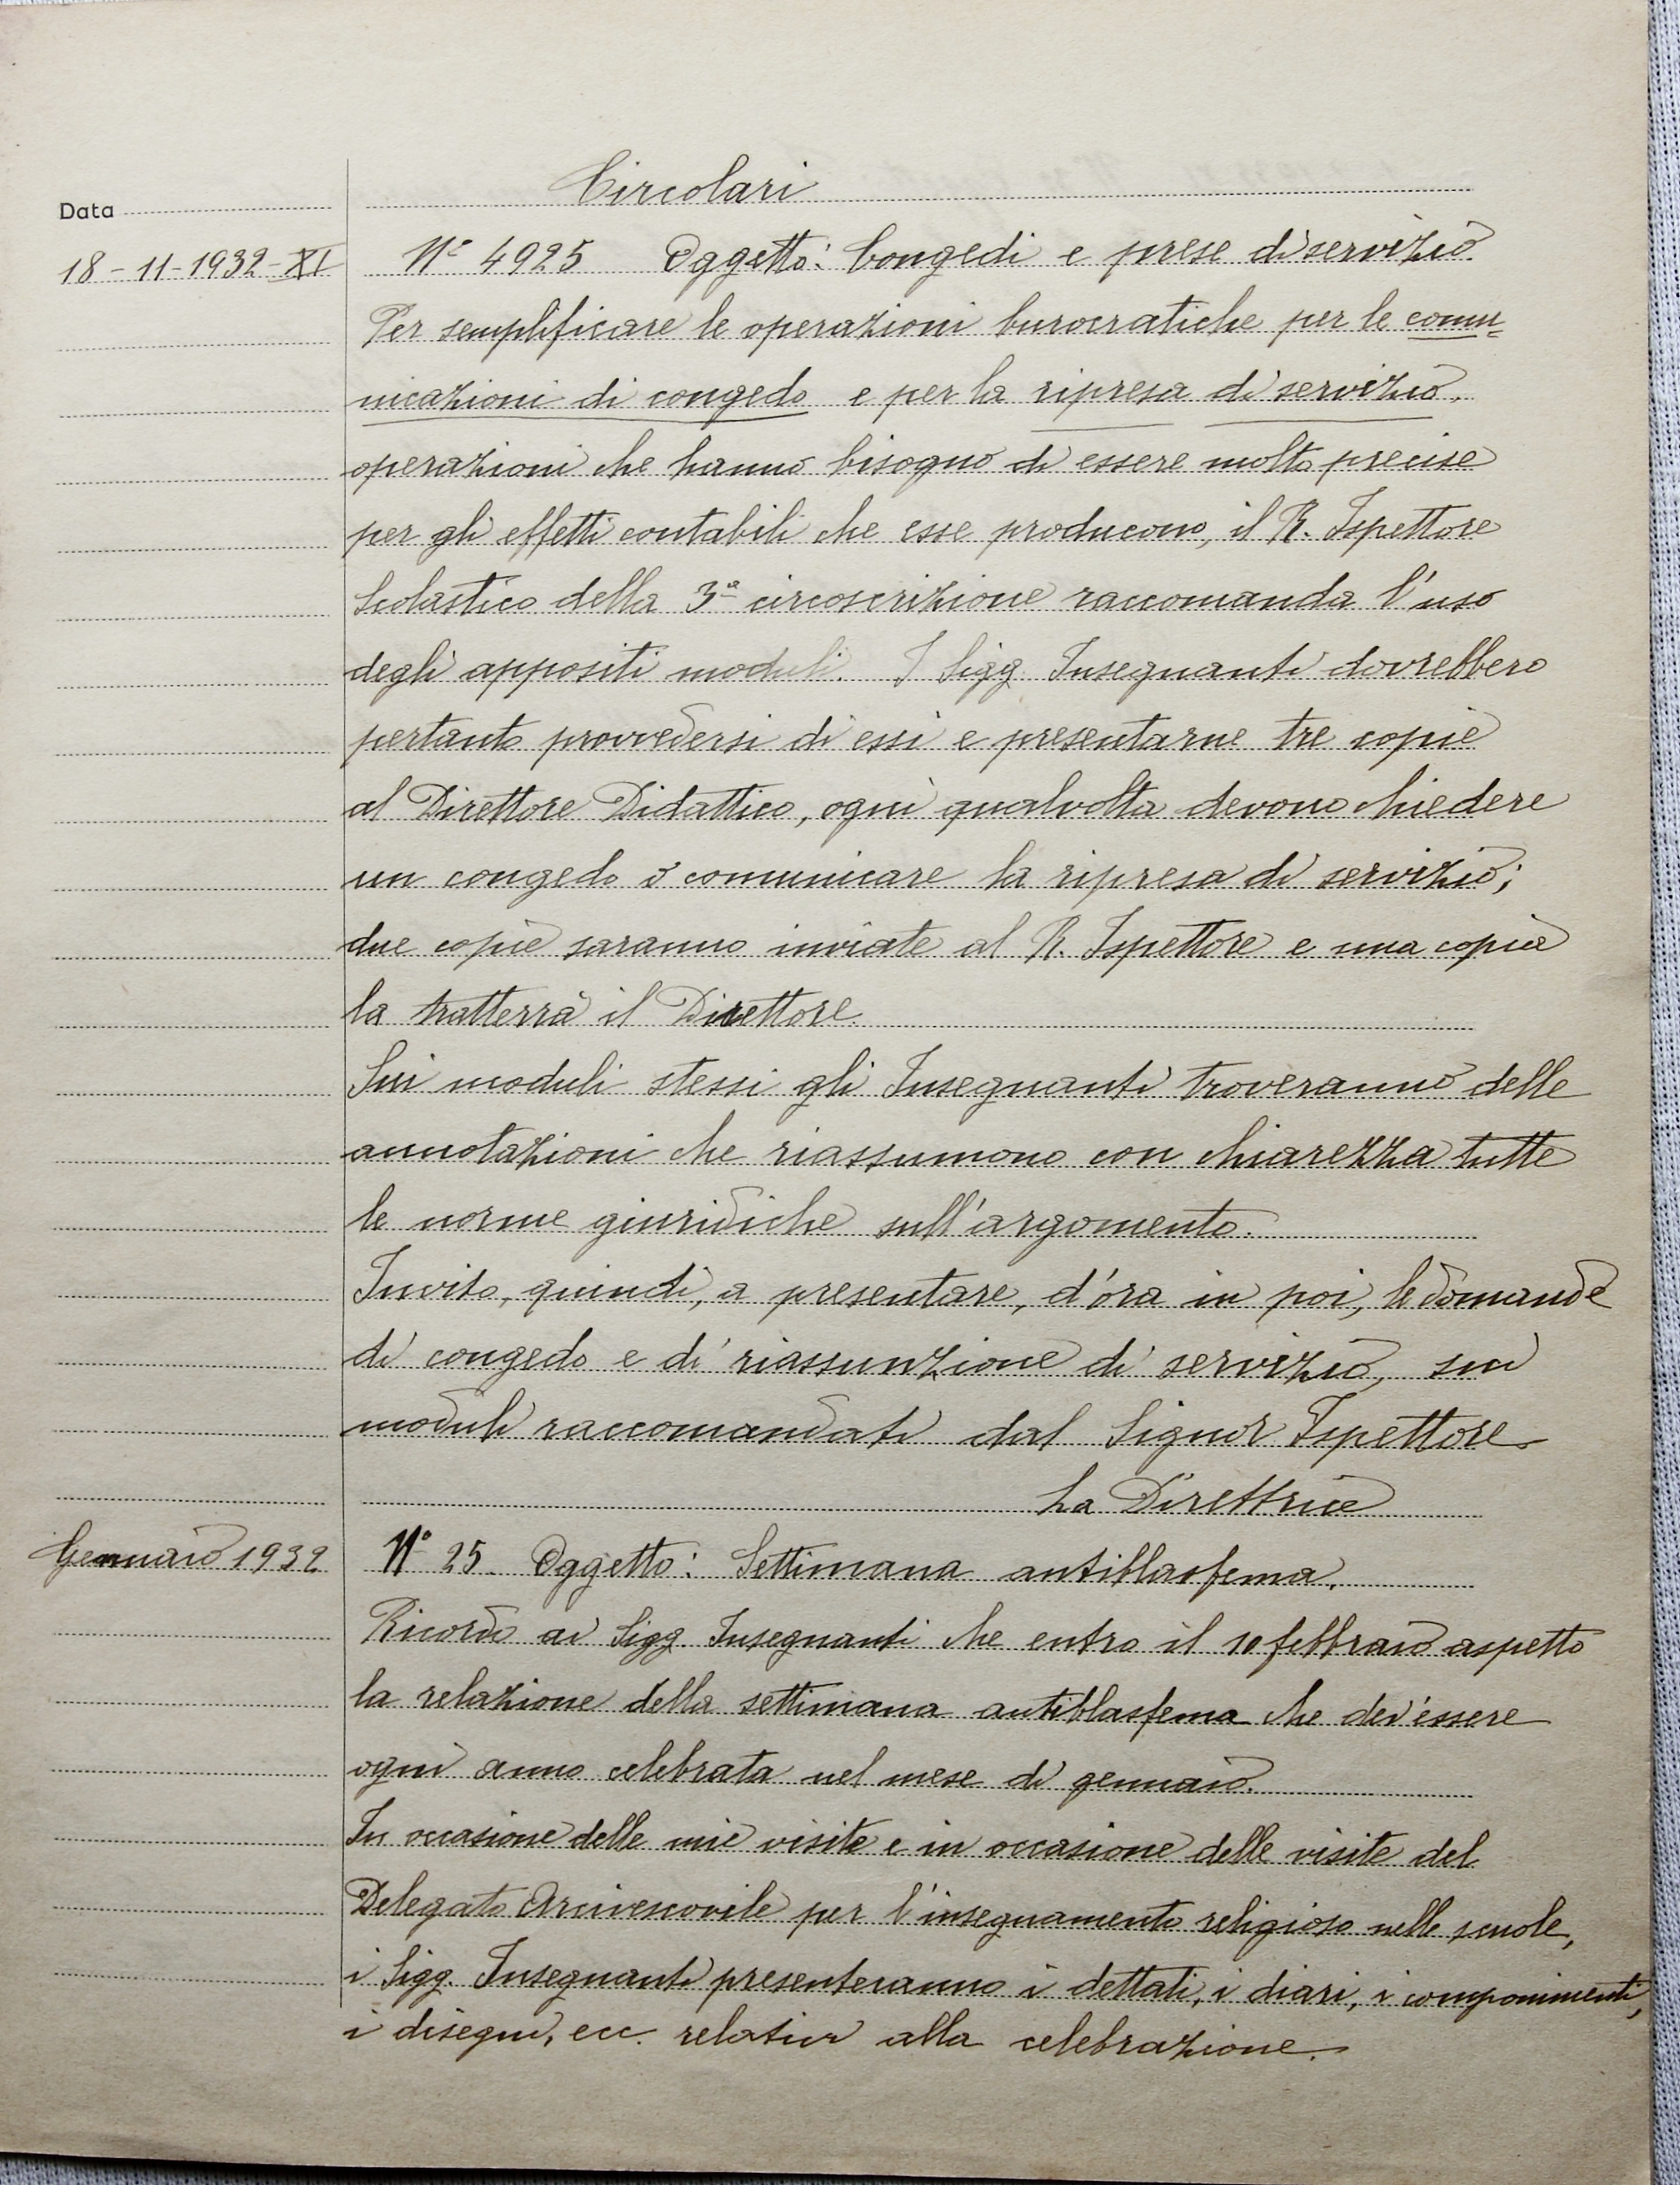 Circolari
Data
18-11-1932-XI N° 4925 Oggetto: Congedi e prese di servizio.
Per semplificare le operazioni burocratiche per le comu=
nicazioni di congedo e per la ripresa di servizio,
operazioni che hanno bisogno di essere molto precise
per gli effetti contabili che esse producono, il R. Ispettore
Scolastico della 3ª circoscrizione raccomanda l'uso
degli appositi moduli. I Sigg. Insegnanti dovrebbero
pertanto provvedersi di essi e presentarne tre copie
al Direttore Didattico, ogni qualvolta devono chiedere
un congedo o comunicare la ripresa di servizio;
due copie saranno inviate al R. Ispettore e una copia
la tratterrà il Direttore.
Sui moduli stessi gli Insegnanti troveranno delle
annotazioni che riassumono con chiarezza tutte
le norme giuridiche sull'argomento.
Invito, quindi, a presentare, d'ora in poi, le domande
di congedo e di riassunzione di servizio, sui
moduli raccomandati dal Signor Ispettore
La Direttrice
Gennaio 1932 N° 25. Oggetto: Settimana antiblasfema.
Ricordo ai Sigg. Insegnanti che entro il 10 febbraio aspetto
la relazione della settimana antiblasfema che dev'essere
ogni anno celebrata nel mese di gennaio.
In occasione delle mie visite e in occasione delle visite del
Delegato Arcivescovile per l'insegnamento religioso nelle scuole,
i Sigg. Insegnanti presenteranno i dettati, i diari, i componimenti,
i disegni, ecc. relativi alla celebrazione.